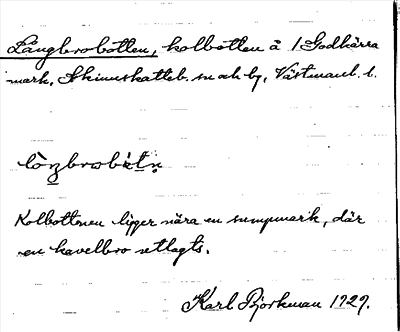 Långbrobotten, kolbotten å 1 Godkärra
mark, Skinnskatteb. sn och by, Västmanl. l.
Kolbottenen ligger nära en sumpmark, där
en kavelbro utlagts.
Karl Björkman 1929.